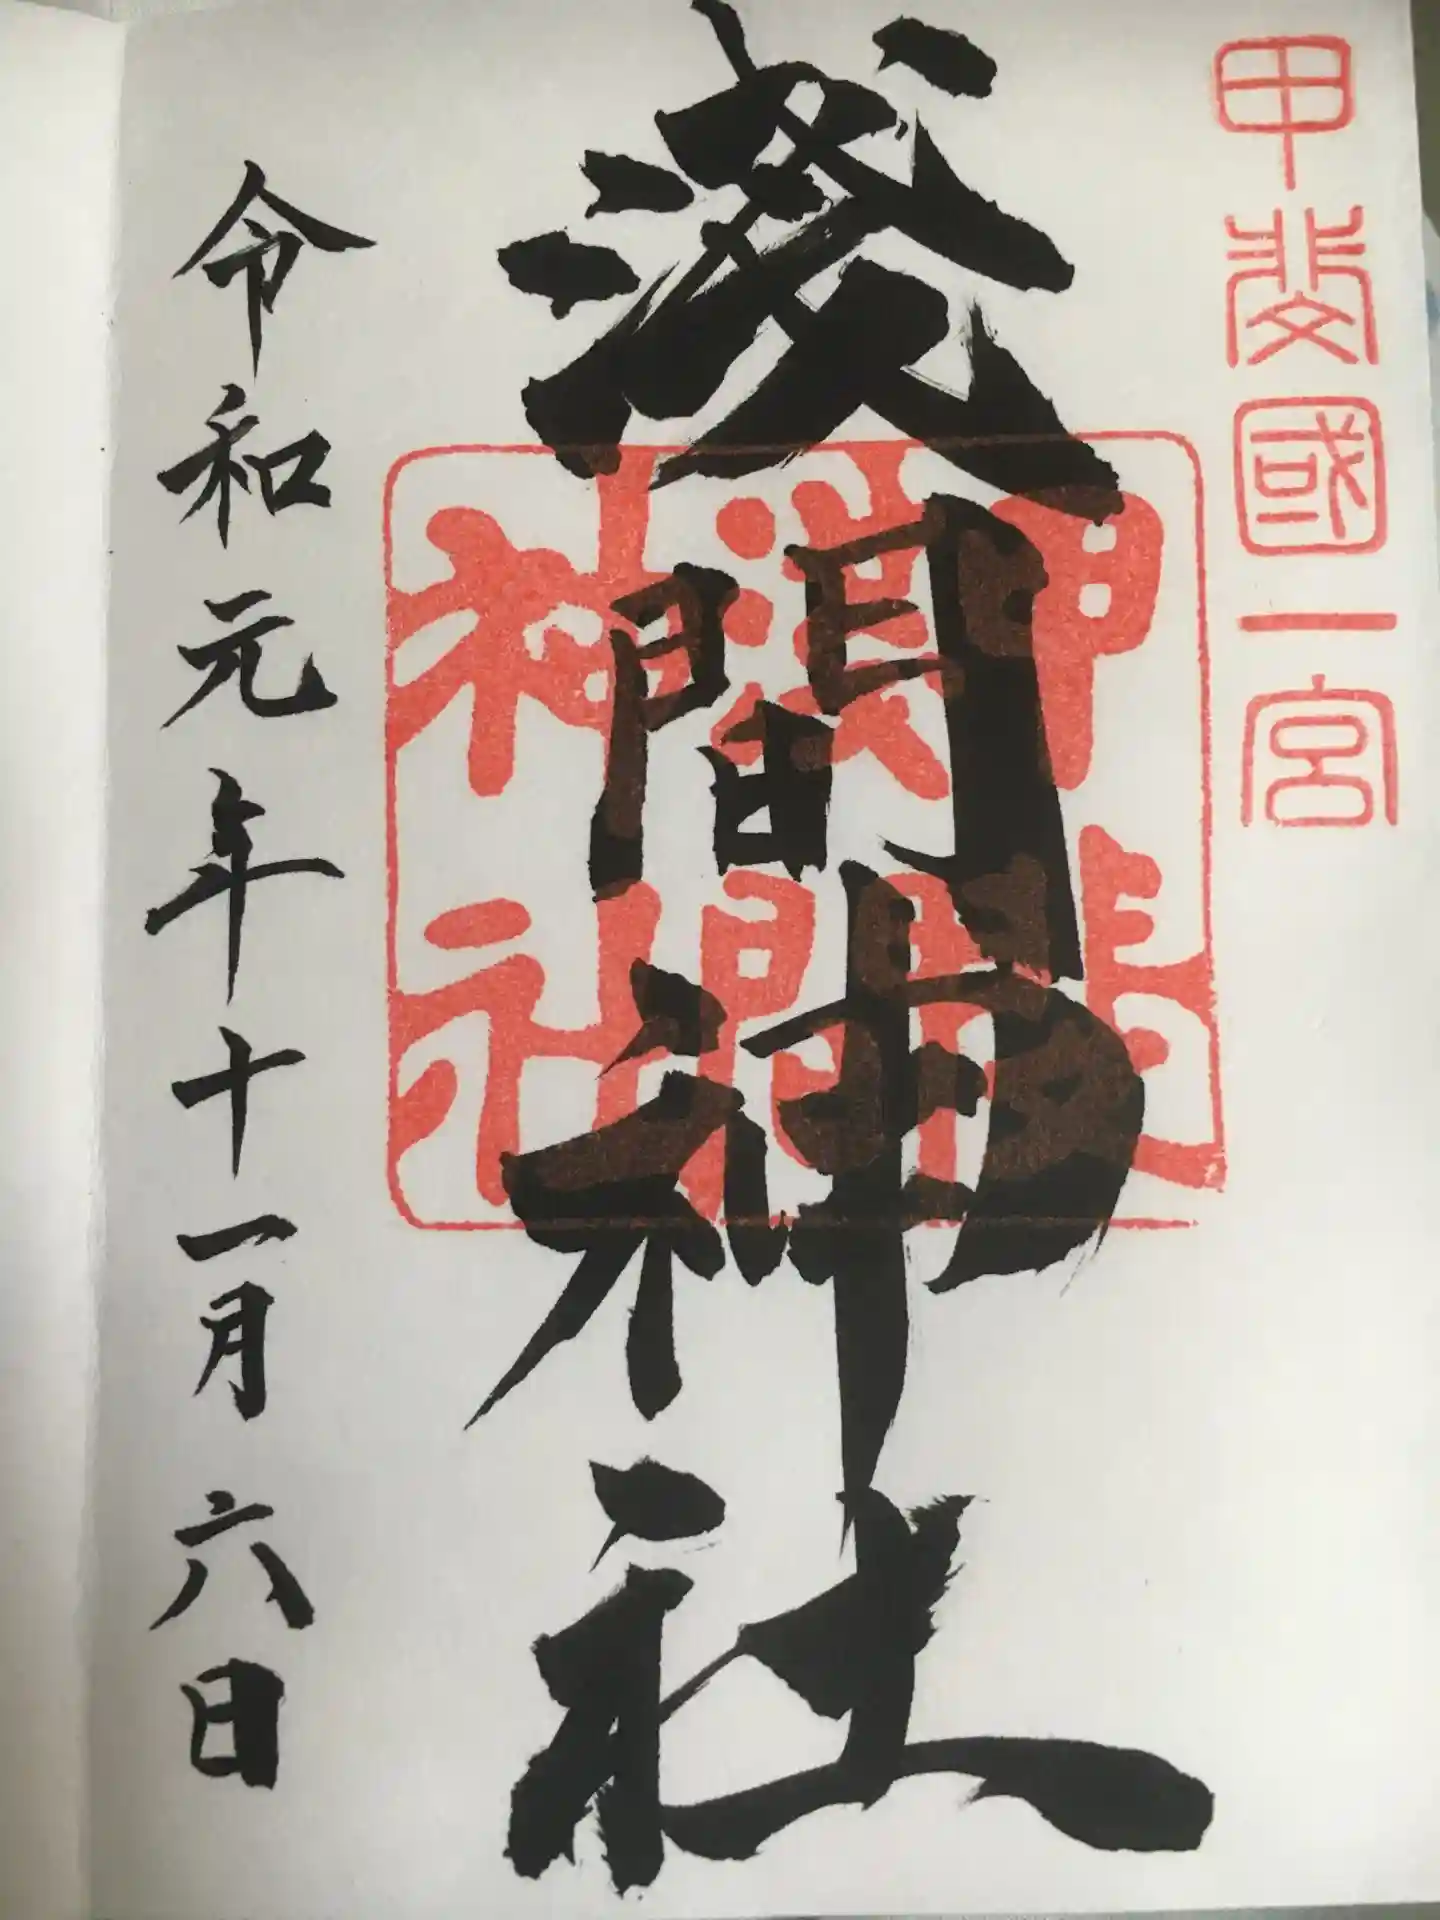 甲斐國一宮
淺間神社
甲斐淺間神社
令和元年十一月六日